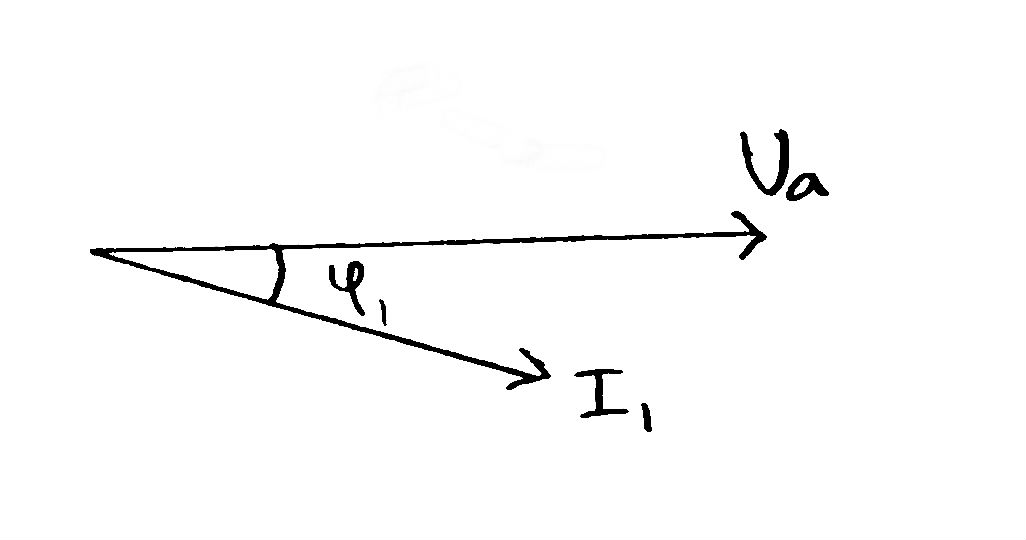 Ua
φ₁
I₁